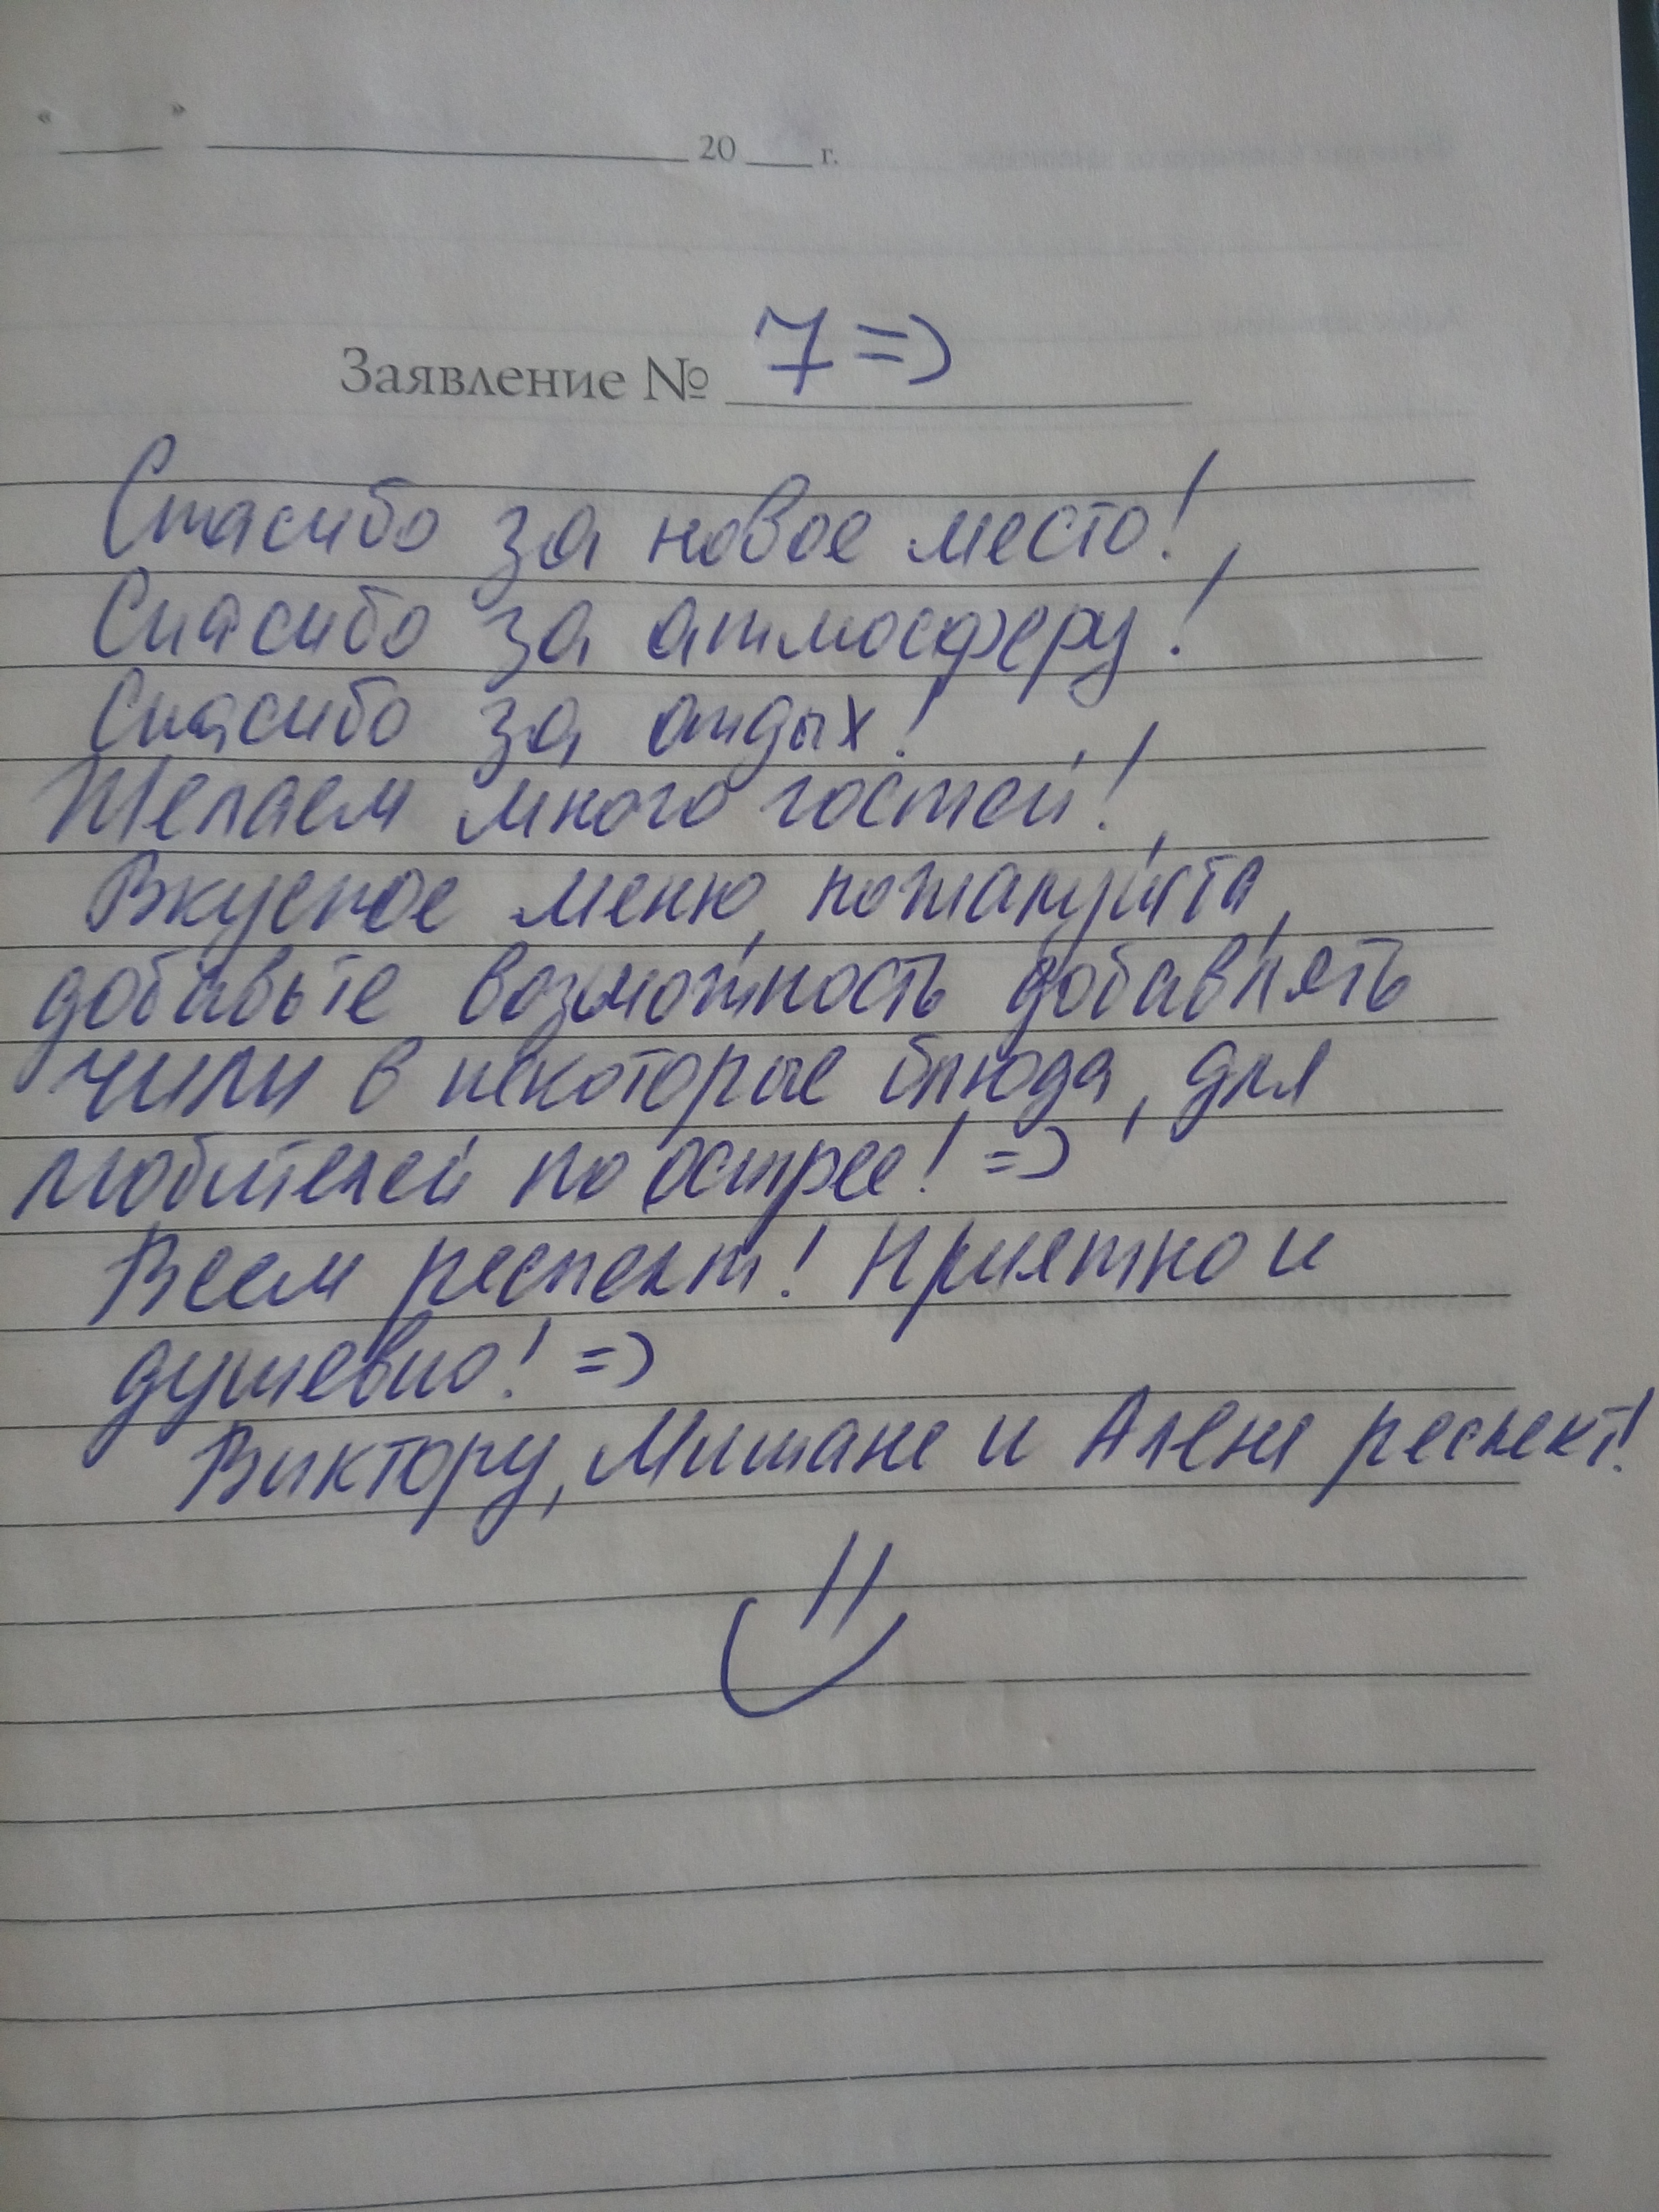 « ____ » ____________ 20 ___ г.
Заявление № 7 =)
Спасибо за новое место!
Спасибо за атмосферу!
Спасибо за отдых!
Желаем много гостей!
Вкусное меню, пожалуйста,
добавьте возможность добавлять
чили в некоторые блюда, для
любителей по острее! =)
Всем респект! Приятно и
душевно! =)
Виктору, Мишане и Алене респект!